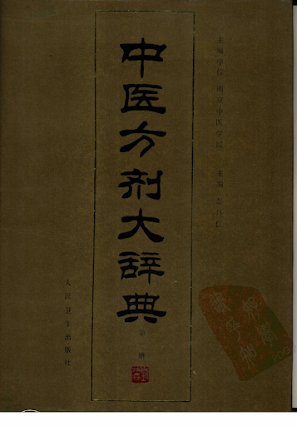 中医方剂大辞典
主编学院 南京中医学院
主编 彭怀仁
第 册
人民卫生出版社